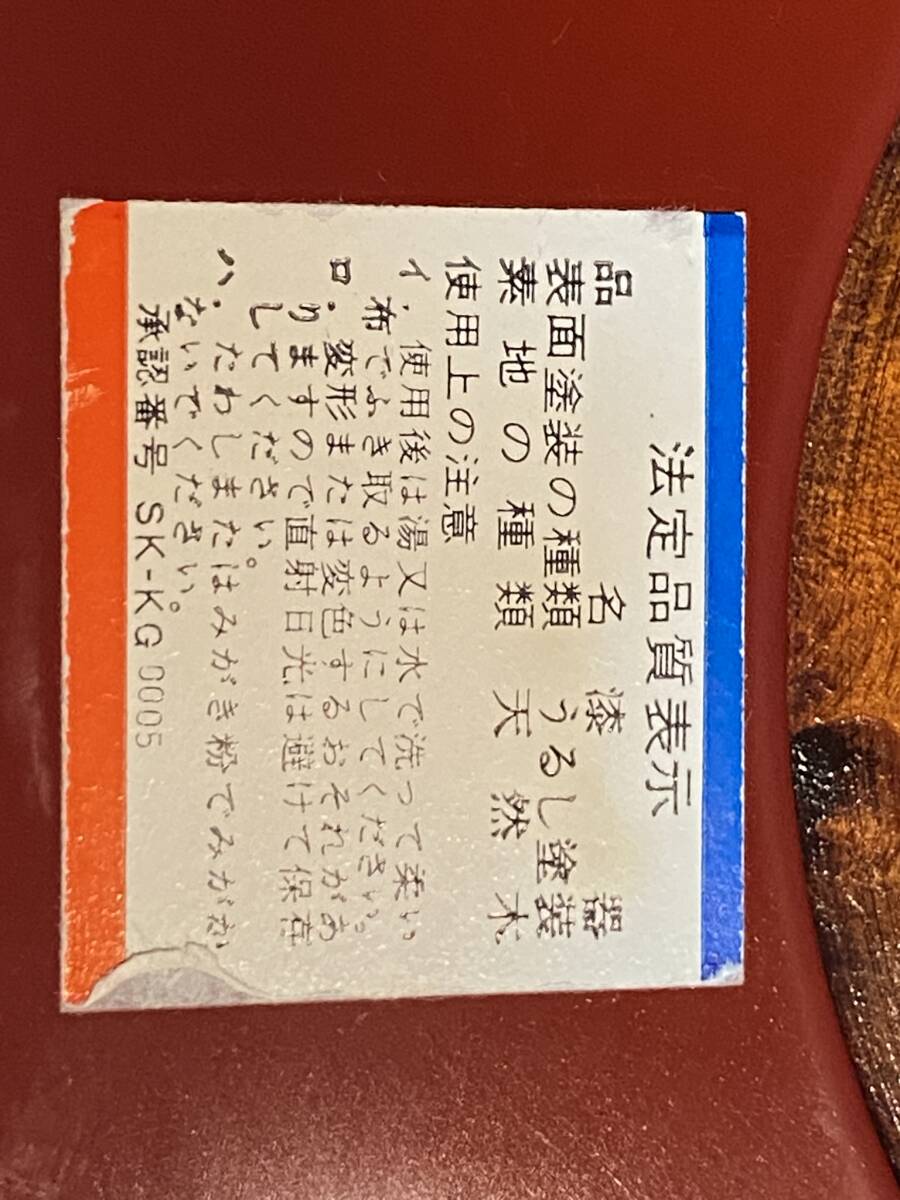 法定品質表示
品名 漆器
表面塗装の種類 うるし塗装
素地の種類 天然木
使用上の注意
イ、使用後は湯又は水で洗って柔い
布でふき取るようにしてください。
ロ、変形または変色するおそれがあ
りますので直射日光は避けて保存
してください。
ハ、たわしまたはみがき粉でみがか
ないでください。
承認番号 SK-KG 0005